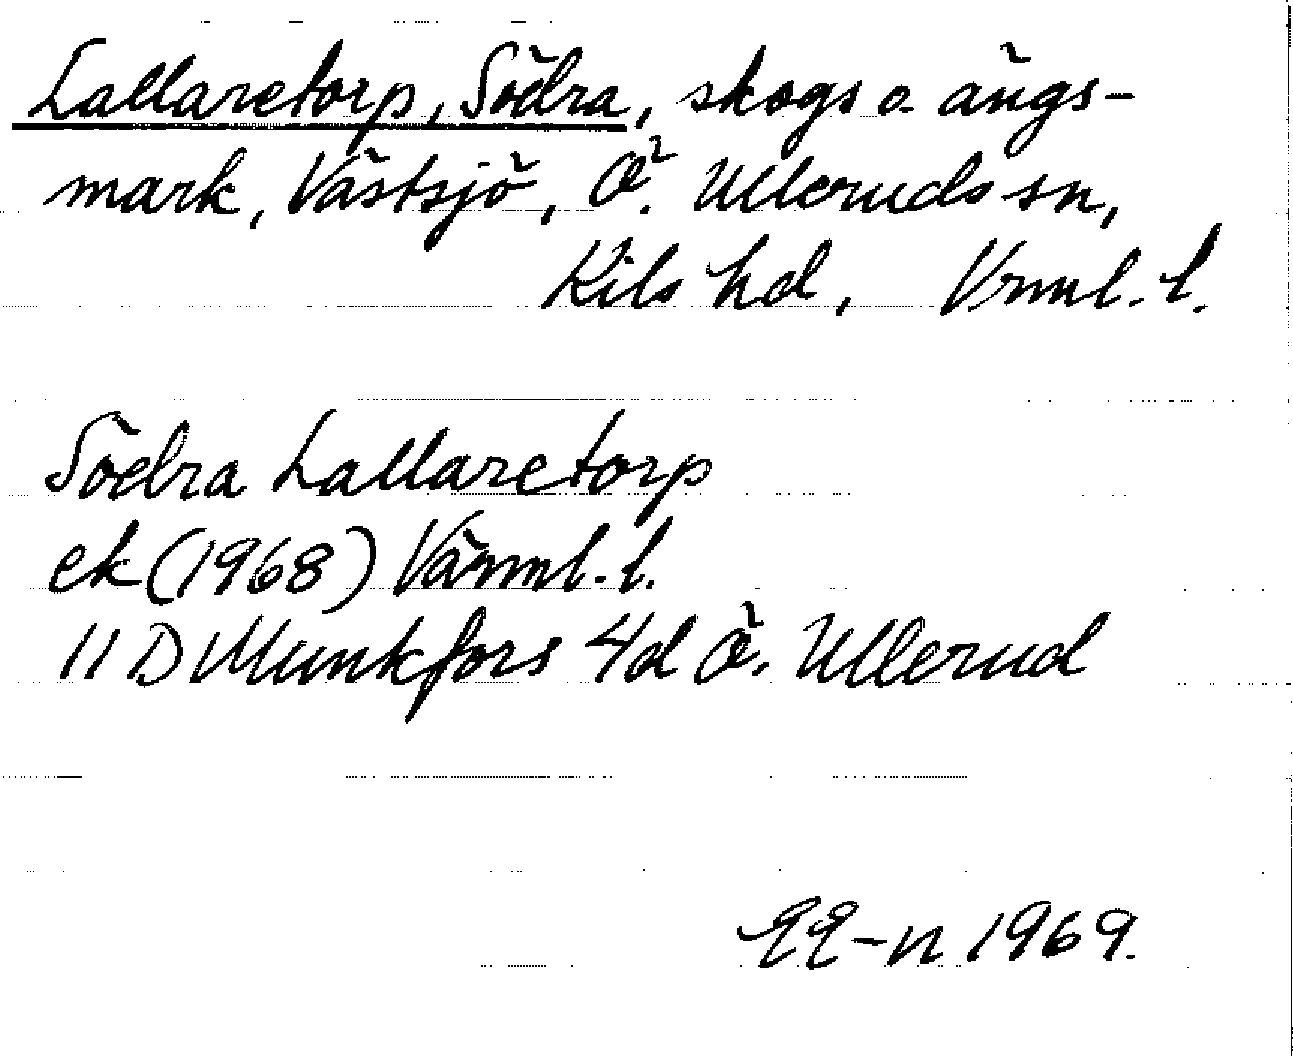 Lallaretorp, Södra, skogs o. ängs-
mark, Västsjö, Ö. Ulleruds sn,
Kils hd, Vrml. l.
Södra Lallaretorp
ek (1968) Värml. l.
11 D Munkfors 4d Ö. Ullerud
EE-n 1969.